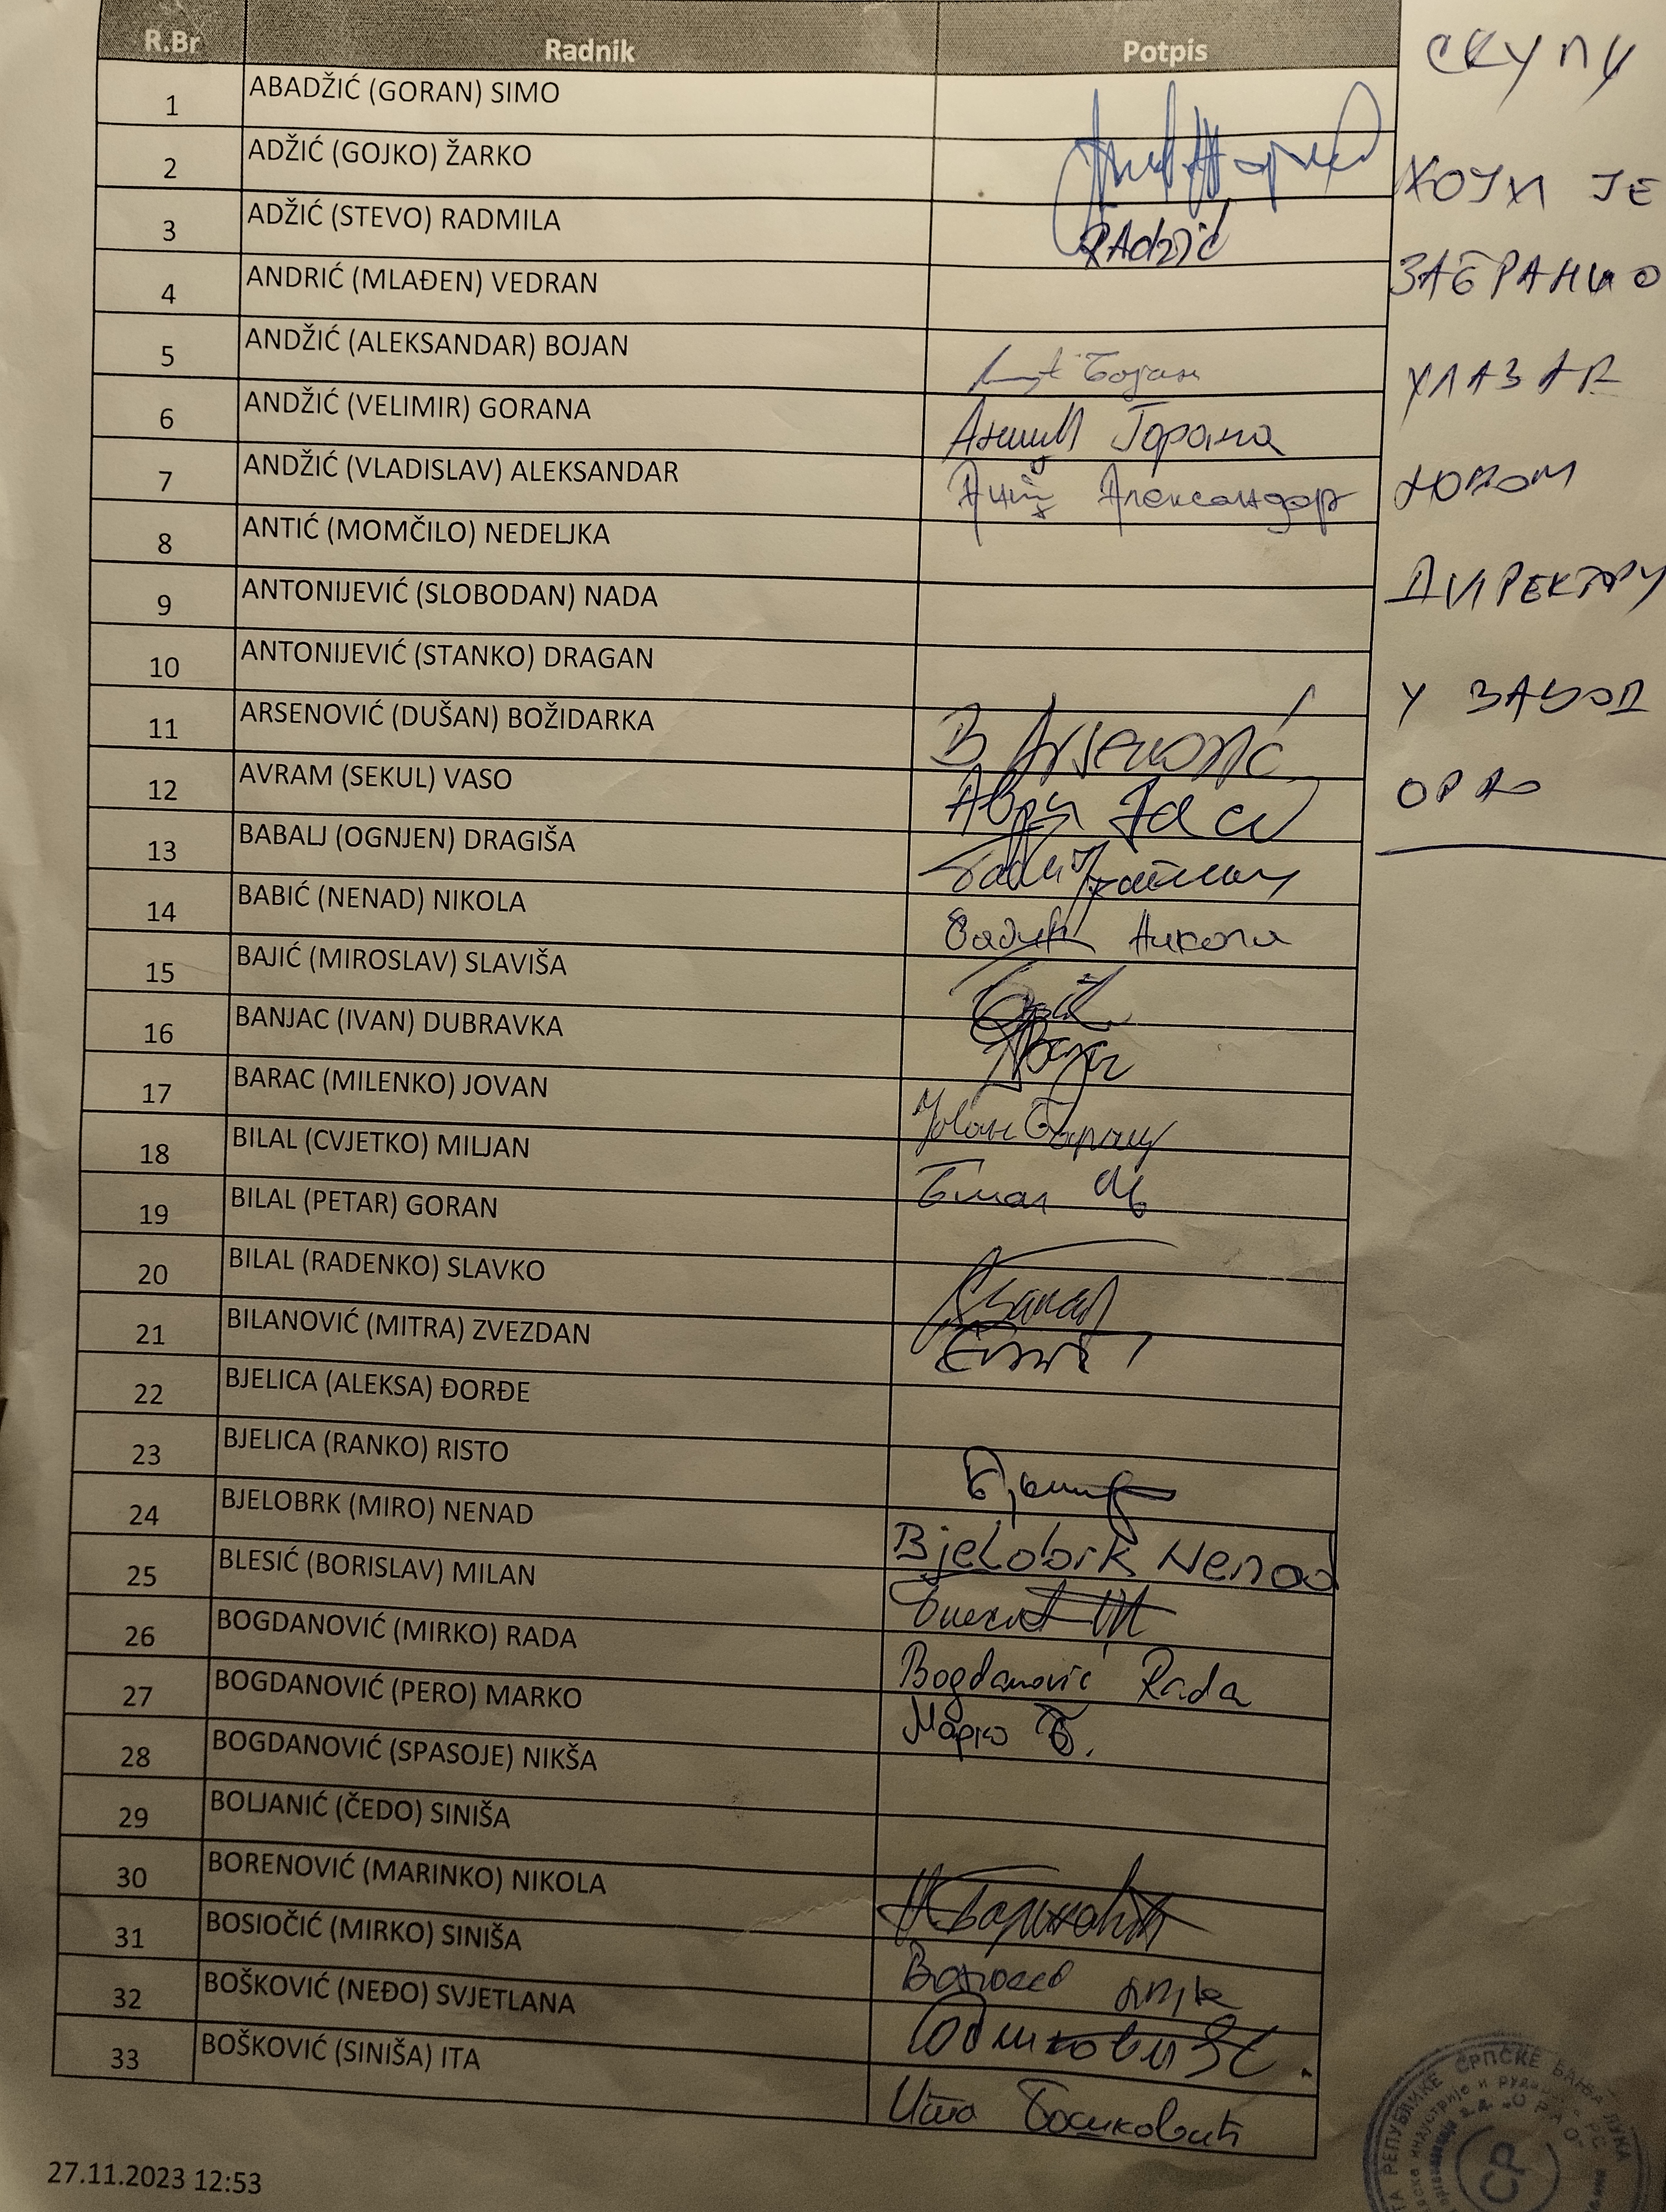 R.Br Radnik Potpis
СКУПУ
1 ABADŽIĆ (GORAN) SIMO
2 ADŽIĆ (GOJKO) ŽARKO
КОЈИ ЈЕ
3 ADŽIĆ (STEVO) RADMILA RAdžić
ЗАБРАНИО
4 ANDRIĆ (MLAĐEN) VEDRAN
5 ANDŽIĆ (ALEKSANDAR) BOJAN Бојан
УЛАЗАК
6 ANDŽIĆ (VELIMIR) GORANA Горана
7 ANDŽIĆ (VLADISLAV) ALEKSANDAR Александар
НОВОМ
8 ANTIĆ (MOMČILO) NEDELJKA
9 ANTONIJEVIĆ (SLOBODAN) NADA
ДИРЕКТОРУ
10 ANTONIJEVIĆ (STANKO) DRAGAN
У ЗАВОД
11 ARSENOVIĆ (DUŠAN) BOŽIDARKA B Arsenović
ОРАО
12 AVRAM (SEKUL) VASO
13 BABALJ (OGNJEN) DRAGIŠA
14 BABIĆ (NENAD) NIKOLA Бабић Никола
15 BAJIĆ (MIROSLAV) SLAVIŠA
16 BANJAC (IVAN) DUBRAVKA
17 BARAC (MILENKO) JOVAN Јован Барац
18 BILAL (CVJETKO) MILJAN Билал М
19 BILAL (PETAR) GORAN
20 BILAL (RADENKO) SLAVKO
21 BILANOVIĆ (MITRA) ZVEZDAN
22 BJELICA (ALEKSA) ĐORĐE
23 BJELICA (RANKO) RISTO
24 BJELOBRK (MIRO) NENAD Bjelobrk Nenad
25 BLESIĆ (BORISLAV) MILAN
26 BOGDANOVIĆ (MIRKO) RADA Bogdanović Rada
27 BOGDANOVIĆ (PERO) MARKO Марко Б.
28 BOGDANOVIĆ (SPASOJE) NIKŠA
29 BOLJANIĆ (ČEDO) SINIŠA
30 BORENOVIĆ (MARINKO) NIKOLA
31 BOSIOČIĆ (MIRKO) SINIŠA
32 BOŠKOVIĆ (NEĐO) SVJETLANA
33 BOŠKOVIĆ (SINIŠA) ITA Ита Бошковић
27.11.2023 12:53
РЕПУБЛИКЕ СРПСКЕ БАЊА ЛУКА
СР